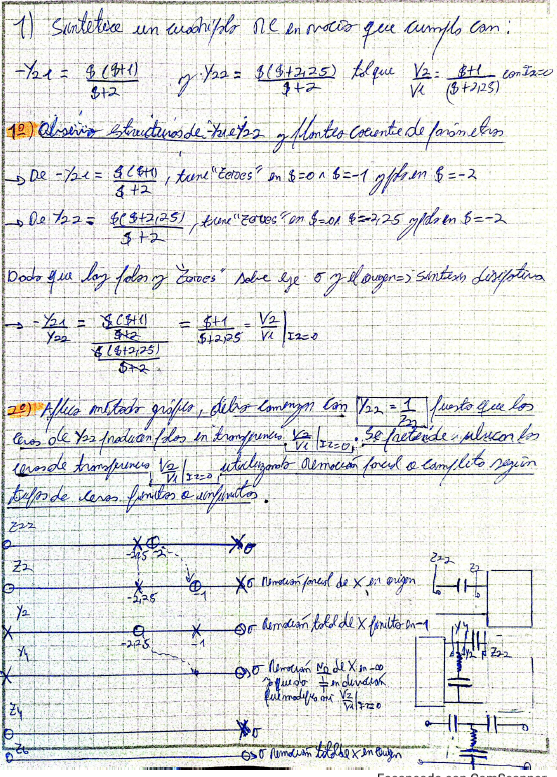 1) Sintetice un cuadripolo RC en vacío que cumpla con:
-Y21 = $($+1) / $+2 y Y22 = $($+2,25) / $+2 tal que V2/V1 = $+1 / ($+2,25) con I2=0
1º) Observo estructuras de -Y21 e Y22 y planteo cociente de parámetros
→ De -Y21 = $($+1) / $+2, tiene "ceroes" en $=0 ∧ $=-1 y polo en $=-2
→ De Y22 = $($+2,25) / $+2, tiene "ceroes" en $=0 ∧ $=-2,25 y polo en $=-2
Dado que hay polos y "ceroes" sobre eje σ y el origen => síntesis disipativa
→ -Y21 / Y22 = $($+1) / $+2 / $($+2,25) / $+2 = $+1 / $+2,25 = V2/V1 | I2=0
2º) Aplico método gráfico, debo comenzar con Y22 = 1/Z22 puesto que los
ceros de Y22 producen polos en transferencia V2/V1 | I2=0. Se pretende ubicar los
ceros de transferencia V2/V1 | I2=0 utilizando remoción parcial o completa según
tipos de ceros finitos o infinitos.
Z22
-2,25 -2 σ
Z2
-2,25 -1 σ Remoción parcial de X en origen
Y2
-2,25 -1 σ Remoción total de X finito en -1
Y4
σ Remoción NO de X en -∞
ya que do en derivación
que modifica a V2/V1 | I2=0
Z4
σ
Z6
σ remoción total de X en origen
Z22
Z2
Y4
Y2
Z22
Escaneado con CamScanner